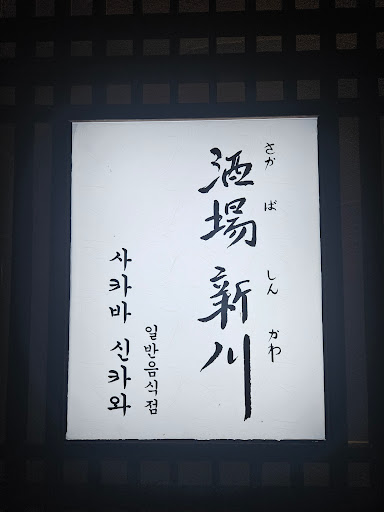 さかば しんかわ
酒場 新川
일반음식점
사카바 신카와